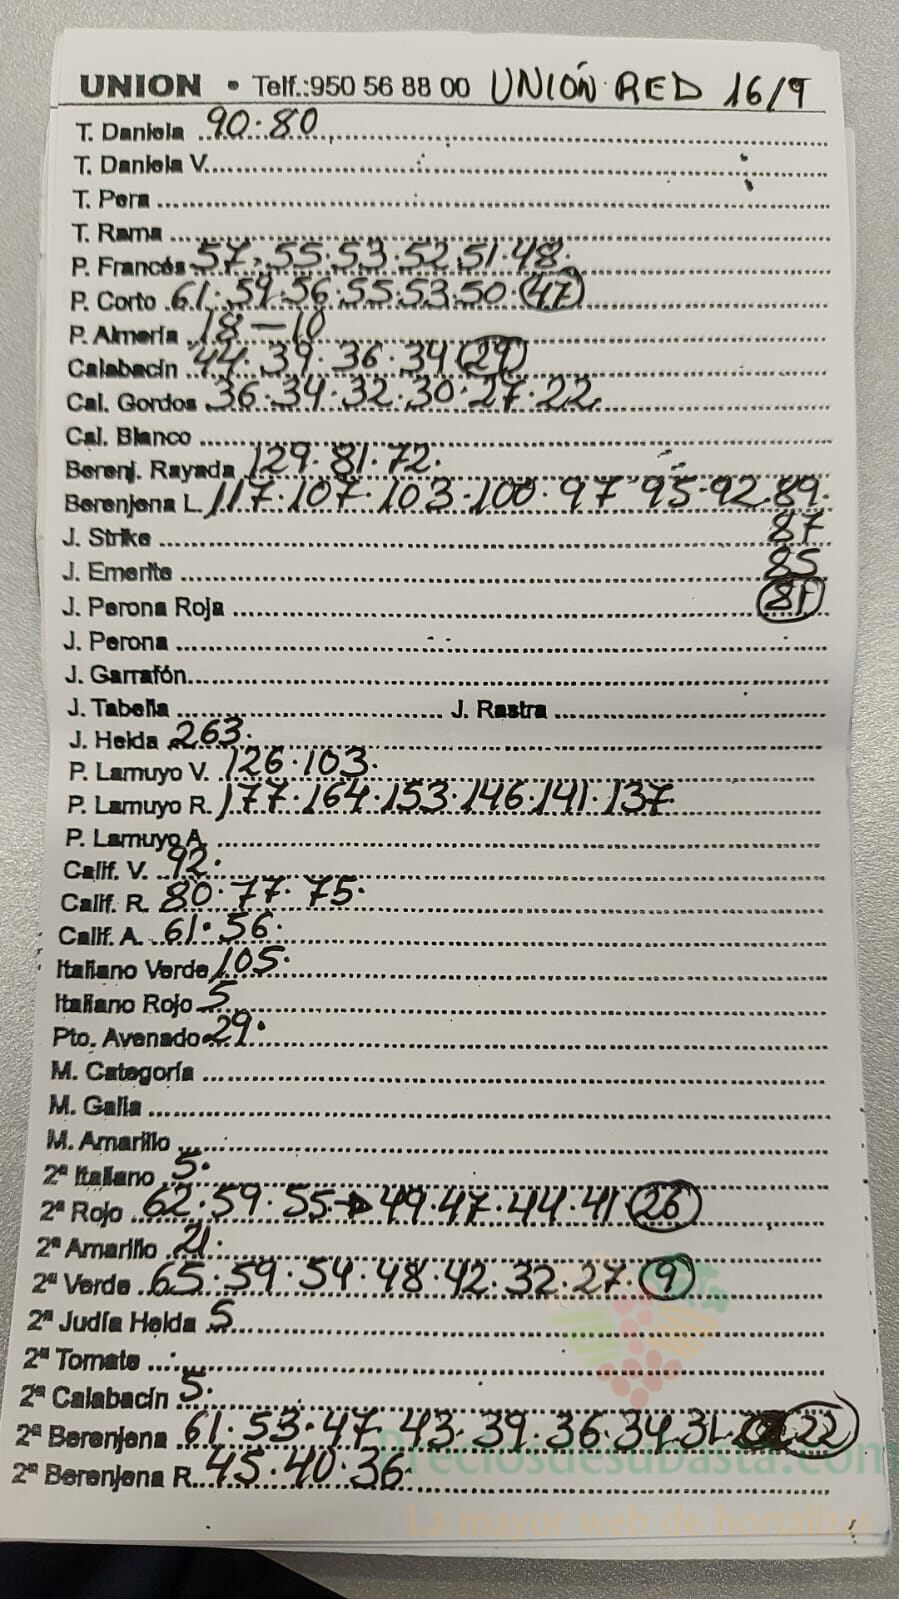 UNION • Telf.:950 56 88 00 UNIÓN RED 16/9
T. Daniela 90·80
T. Daniela V.
T. Pera
T. Rama
P. Francés 57·55·53·52·51·48·
P. Corto 61·59·56·55·53·50·(47)
P. Almería 18—10
Calabacín 44·39·36·34(29)
Cal. Gordos 36·34·32·30·27·22
Cal. Blanco
Berenj. Rayada 129·81·72·
Berenjena L. 117·107·103·100·97·95·92·89·
J. Strike 87
J. Emerite 85
J. Perona Roja (81)
J. Perona
J. Garrafón
J. Tabella J. Rastra
J. Helda 263·
P. Lamuyo V. 126·103·
P. Lamuyo R. 177·164·153·146·141·137·
P. Lamuyo A.
Calif. V. 92·
Calif. R. 80·77·75·
Calif. A. 61·56·
Italiano Verde 105·
Italiano Rojo 5
Pto. Avenado 29·
M. Categoría
M. Galia
M. Amarillo
2ª Italiano 5·
2ª Rojo 62·59·55→49·47·44·41(26)
2ª Amarillo 21·
2ª Verde 65·59·54·48·42·32·27·(9)
2ª Judía Helda 5
2ª Tomate
2ª Calabacín 5·
2ª Berenjena 61·53·47·43·39·36·34·31 (22)
2ª Berenjena R. 45·40·36·
Preciosdesubasta.com
La mayor web de hortalizas